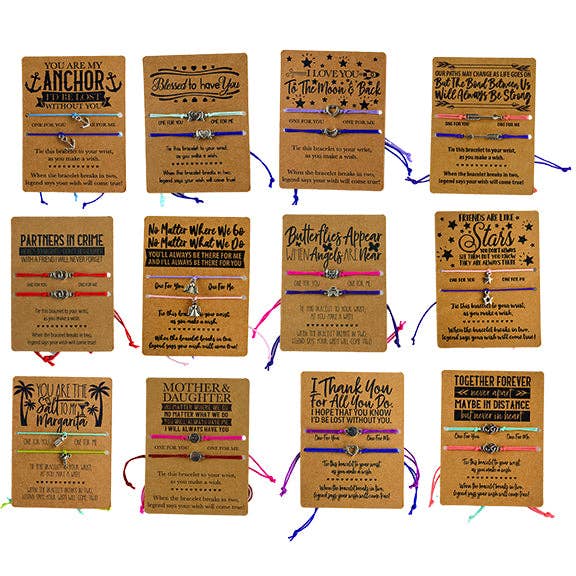 YOU ARE MY
ANCHOR
I'D BE LOST
WITHOUT YOU
ONE FOR YOU ONE FOR ME
Tie this bracelet to your wrist,
as you make a wish.
When the bracelet breaks in two,
legend says your wish will come true!
Blessed to have You
ONE FOR YOU ONE FOR ME
Tie this bracelet to your wrist,
as you make a wish.
When the bracelet breaks in two,
legend says your wish will come true!
I LOVE YOU
To The Moon & Back
ONE FOR YOU ONE FOR ME
Tie this bracelet to your wrist,
as you make a wish.
When the bracelet breaks in two,
legend says your wish will come true!
OUR PATHS MAY CHANGE AS LIFE GOES ON
But The Bond Between Us
Will Always Be Strong
ONE FOR YOU ONE FOR ME
Tie this bracelet to your wrist,
as you make a wish.
When the bracelet breaks in two,
legend says your wish will come true!
PARTNERS IN CRIME
WITH A FRIEND WILL NEVER FORGET
ONE FOR YOU ONE FOR ME
Tie this bracelet to your wrist,
as you make a wish.
When the bracelet breaks in two,
legend says your wish will come true!
No Matter Where We Go
No Matter What We Do
YOU'LL ALWAYS BE THERE FOR ME
AND I'LL ALWAYS BE THERE FOR YOU
One For You One For Me
Tie this bracelet to your wrist
as you make a wish.
When the bracelet breaks in two,
legend says your wish will come true!
Butterflies Appear
WHEN Angels ARE Near
ONE FOR YOU ONE FOR ME
TIE THIS BRACELET TO YOUR WRIST,
AS YOU MAKE A WISH.
WHEN THE BRACELET BREAKS IN TWO,
LEGEND SAYS YOUR WISH WILL COME TRUE!
FRIENDS ARE LIKE
Stars
YOU DON'T ALWAYS
SEE THEM BUT YOU KNOW
THEY ARE ALWAYS THERE
ONE FOR YOU ONE FOR ME
Tie this bracelet to your wrist,
as you make a wish.
When the bracelet breaks in two,
legend says your wish will come true!
YOU ARE THE
Salt TO MY
Margarita
ONE FOR YOU ONE FOR ME
TIE THE BRACELET TO YOUR WRIST,
AS YOU MAKE A WISH
WHEN THE BRACELET BREAKS IN TWO,
LEGEND SAYS YOUR WISH WILL COME TRUE!
MOTHER &
DAUGHTER
NO MATTER WHERE WE GO
NO MATTER WHAT WE DO
YOU WILL ALWAYS HAVE ME
I WILL ALWAYS HAVE YOU
ONE FOR YOU ONE FOR ME
Tie this bracelet to your wrist,
as you make a wish.
When the bracelet breaks in two,
legend says your wish will come true!
I Thank You
For All You Do
I HOPE THAT YOU KNOW
I'D BE LOST WITHOUT YOU.
One For You One For Me
Tie this bracelet to your wrist
as you make a wish.
When the bracelet breaks in two,
legend says your wish will come true!
TOGETHER FOREVER
never apart
MAYBE IN DISTANCE
but never in heart
One For You One For Me
Tie this bracelet to your wrist,
as you make a wish.
When the bracelet breaks in two,
legend says your wish will come true!